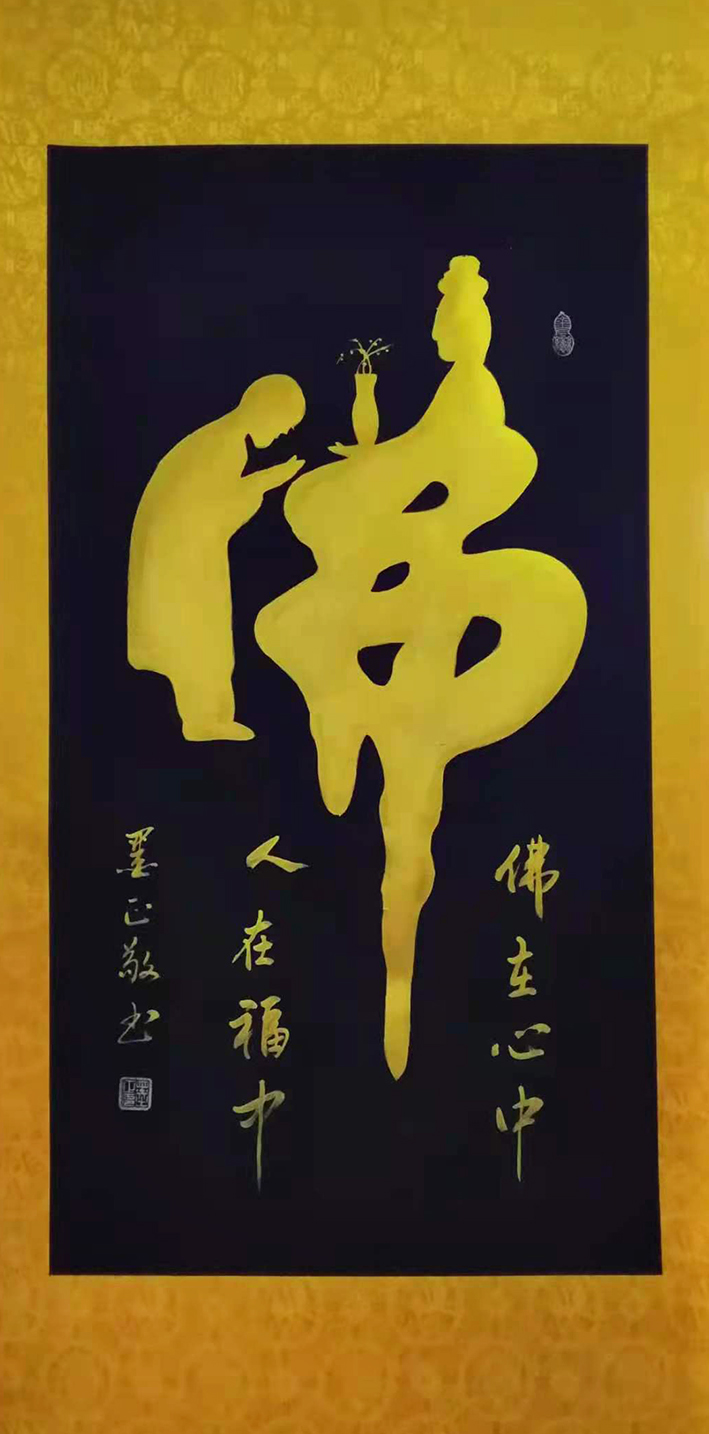 佛
佛在心中
人在福中
墨正敬书